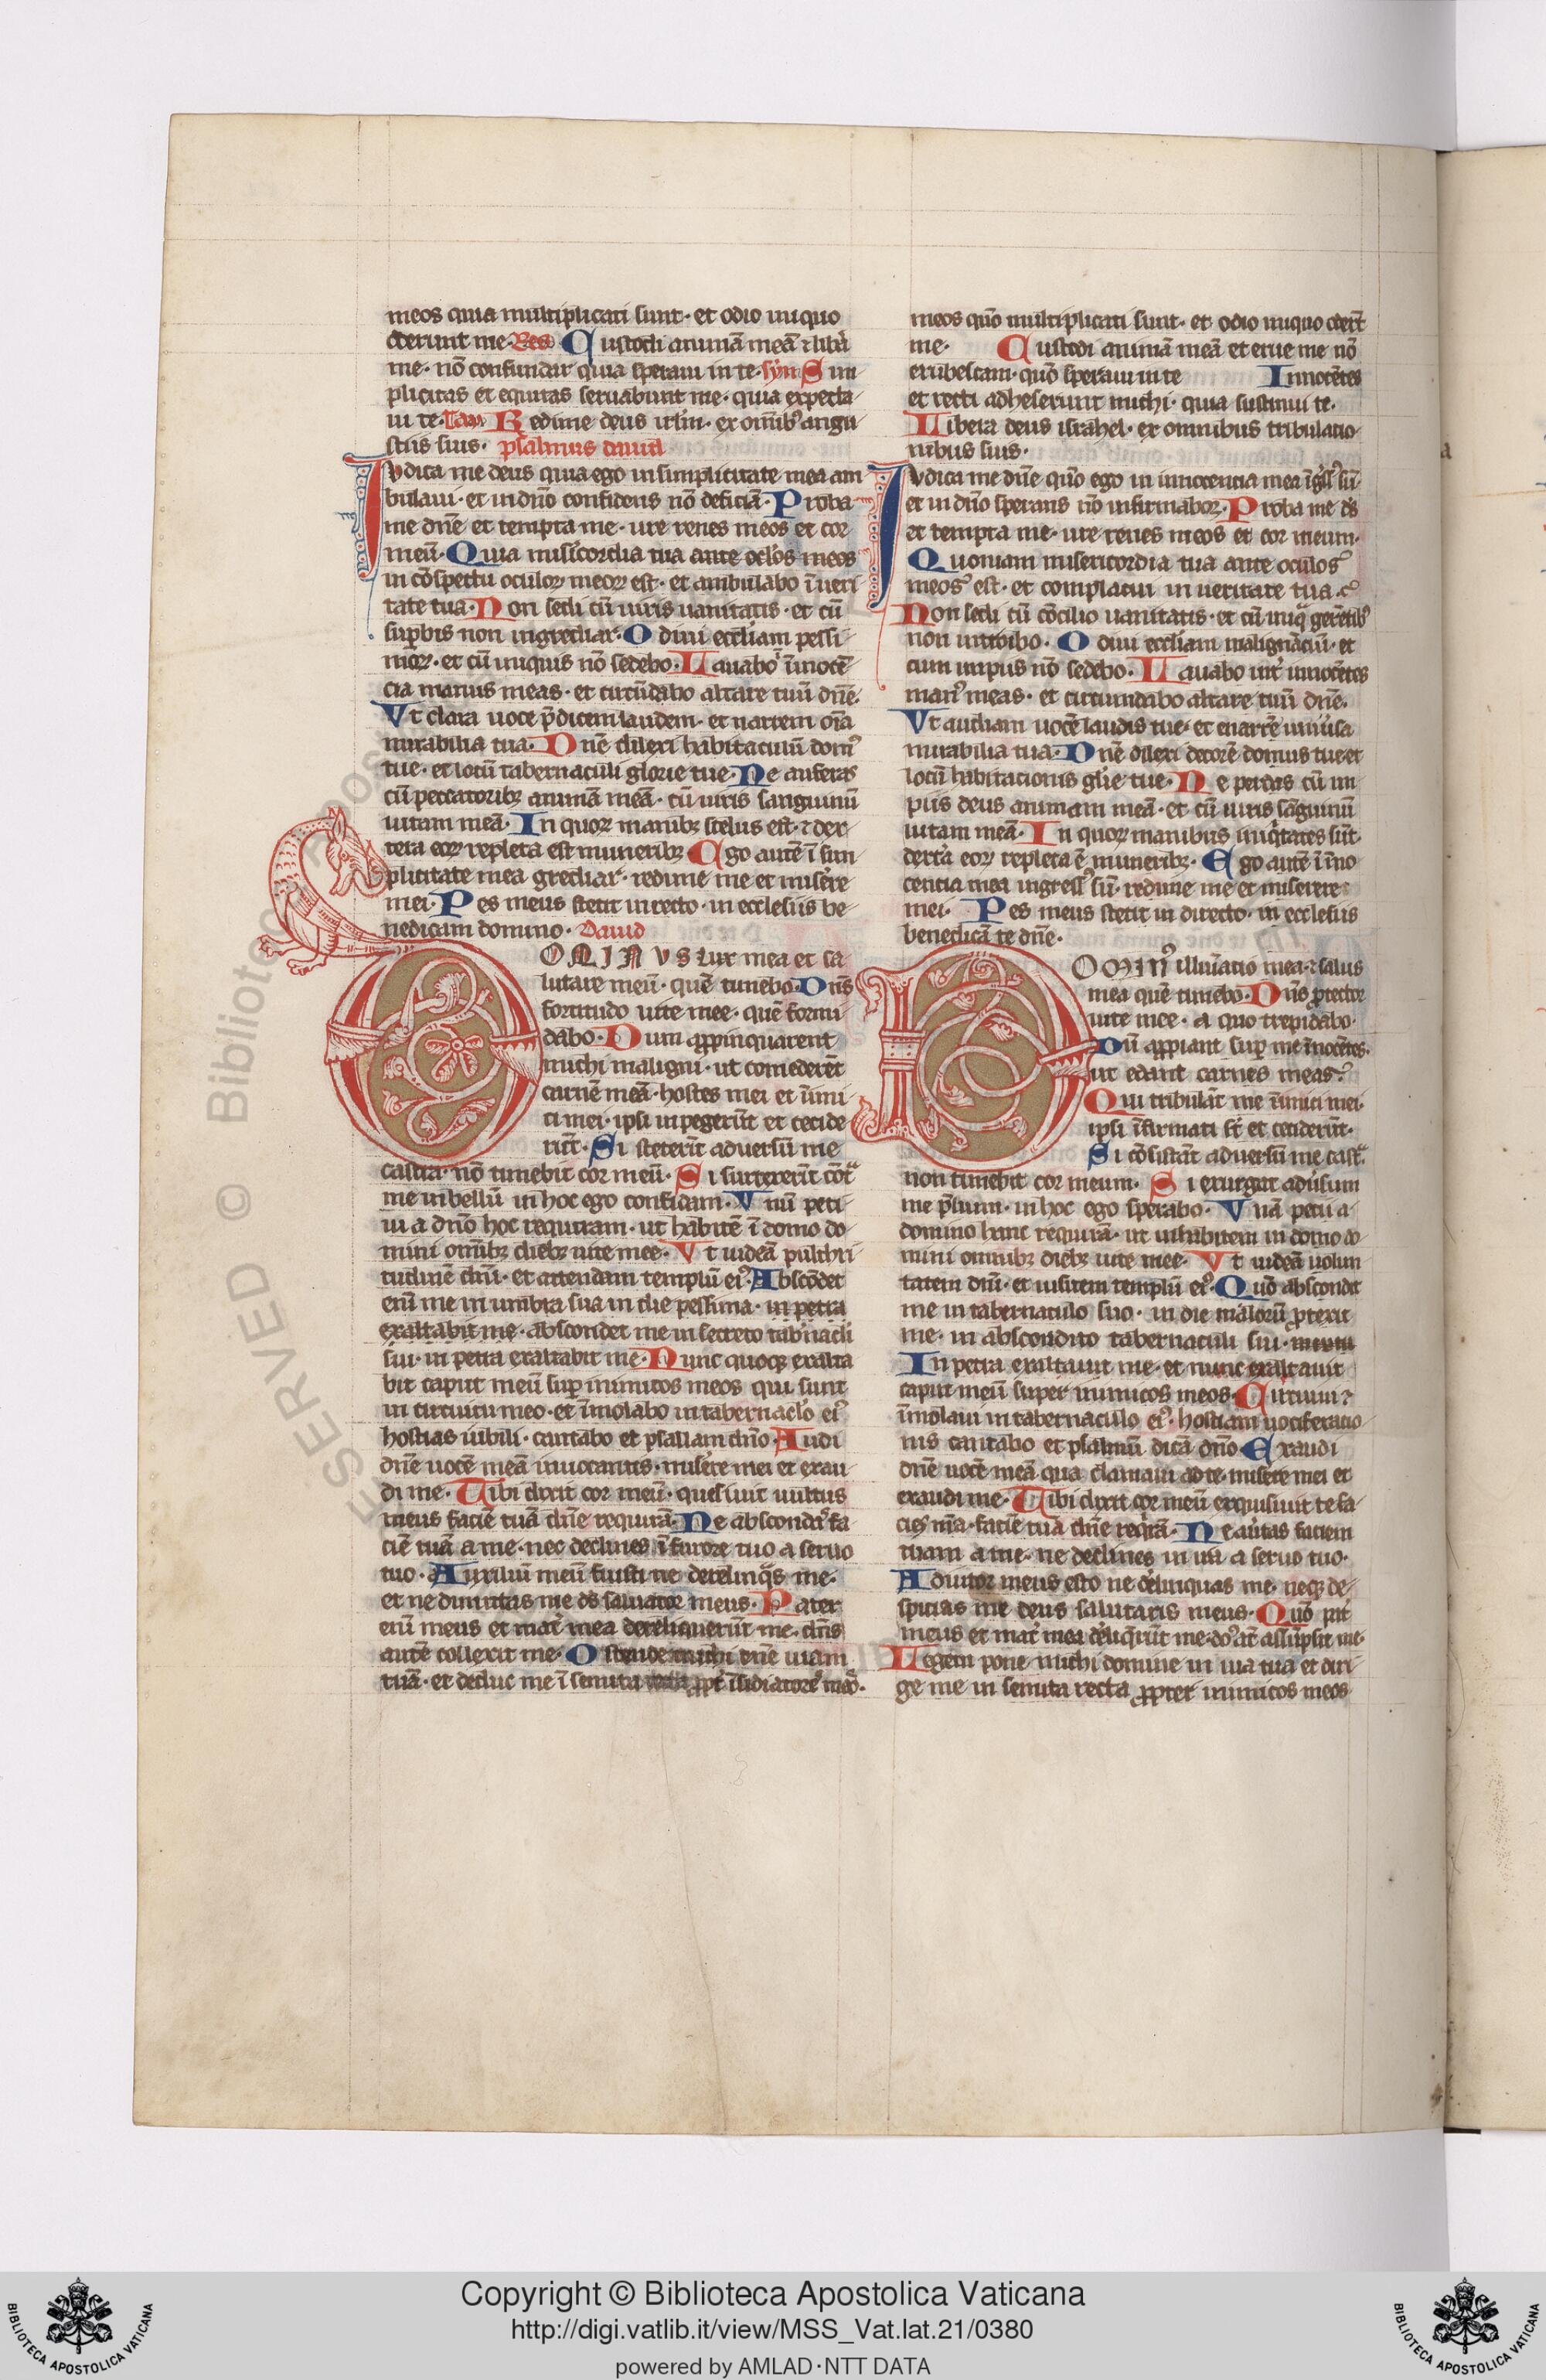 meos quia multiplicati sunt· et odio iniquo
oderunt me· Res Custodi animā meā ⁊ libera
me· nō confundar quia speraui in te· Sim
plicitas et equitas seruabunt me· quia expecta
ui te· Tau Redime deus isrl̄m· ex omībꝰ angu
stiis suis· psalmus dauid
Iudica me deus quia ego in simplicitate mea am
bulaui· et in dn̄o confidens nō deficiā· Proba
me dn̄e et tempta me· ure renes meos et cor
meū· Quia mis̄icordia tua ante oclos meos
in cōspectu oculoꝝ meoꝝ est· et ambulabo ī ueri
tate tua· Non sedi cū uiris uanitatis· et cū
suꝑbis non ingrediar· Odiui eccl̄iam pessi
moꝝ· et cū iniquis nō sedebo· Lauabo ī inocē
cia manus meas· et circūdabo altare tuū dn̄e·
Vt clara uoce p̄dicem laudem· et narrem om̄ia
mirabilia tua· Dn̄e dilexi habitaculū domꝰ
tue· et locū tabernaculi glorie tue· Ne auferas
cū peccatoribꝫ animā meā· cū uiris sanguinū
uitam meā· In quoꝝ manibꝫ scelus est· ⁊ dex
tera eoꝝ repleta est muneribꝫ Ego autē ī sim
plicitate mea grediar· redime me et miserere
mei· Pes meus stetit in recto· in ecclesiis be
nedicam domino· Dauid
DOMINUS lux mea et sa
lutare meū· quē timebo· Dn̄s
fortitudo uite mee· quē formi
dabo· Dum appinquarent
michi maligni· ut comederēt
carnē meā· hostes mei et inimi
ci mei· ipsi inpegerūt et cecide
rūt· Si steterīt aduersū me
castra· nō timebit cor meū· Si surrexerīt cōtᵃ
me in bellū in hoc ego confidam· Vnū peti
ui a dn̄o hoc requiram· ut habitē ī domo do
mini omībꝫ diebꝫ uite mee· Vt uideā pulchri
tudinē dn̄i· et attendam templū eiꝰ Abscōdet
enī me in umbra sua in die pessima· in petra
exaltabit me· abscondet me in secreto tab̄nacli
sui· in petra exaltabit me· Nunc quoqꝫ exalta
bit caput meū suꝑ inimicos meos qui sunt
in circuitu meo· et īmolabo in tabernaclo eiꝰ
hostias iubili· cantabo et psallam dn̄o· Audi
dn̄e uocē meā inuocantis· miserere mei et exau
di me· Tibi dixit cor meū· quesiuit uultus
meus faciē tuā dn̄e requirā· Ne abscondas fa
ciē tuā a me· nec declines ī furore tuo a seruo
tuo· Auxiliū meū fuisti ne derelinqas me·
et ne dimittas me ds̄ saluator meus· Pater
enī meus et mater mea dereliquerūt me· dn̄s
autē collexit me· Ostende michi dn̄e uiam
tuā· et deduc me ī semita ꝓpt̄ īsidiatores meos·
meos qūo multiplicati sunt· et odio iniquo oderūt
me· Custodi animā meā et erue me nō
erubescam· qūo speraui in te Innocētes
et recti adheserunt michi· quia sustinui te·
Libera deus israhel· ex omnibus tribulatio
nibus suis·
Iudica me dn̄e qūo ego in innocencia mea īgressꝰ sū·
et in dn̄o sperans nō infirmaboꝝ· Proba me ds̄
et tempta me· ure renes meos et cor meum·
Quoniam misericordia tua ante oculos
meos est· et complacui in ueritate tua·
Non sedi cū cōcilio uanitatis· et cū iniqᵃ gerētibꝰ
non introibo· Odiui eccl̄iam malignāciū· et
cum impiis nō sedebo· Lauabo int̄ innocētes
manꝰ meas· et circumdabo altare tuū dn̄e·
Vt audiam uocē laudis tue· et enarrē uniūsa
mirabilia tua· Dn̄e dilexi decorē domus tue· et
locū habitacionis gl̄ie tue· Ne perdas cū im
piis deus animam meā· et cū uiris sāguinū
uitam meā· In quoꝝ manibus iniqitates sūt·
dextᵃ eoꝝ repleta ē muneribꝫ· Ego autē ī īno
centia mea ingressꝰ sū· redime me et miserere
mei· Pes meus stetit in directo· in ecclesiis
benedicā te dn̄e·
DOMINꝰ illuīatio mea· ⁊ salus
mea quē timebo· Dn̄s ꝓtector
uite mee· a quo trepidabo·
Dū appiant suꝑ me īnocētes·
ut edant carnes meas·
Qui tribulāt me inimici mei·
ipsi īfirmati sūt et ceciderūt·
Si cōsistāt aduersū me castᵃ·
non timebit cor meum· Si exurgat adūsum
me p̄lium· in hoc ego sperabo· Vnā petii a
domino hanc requirā· ut inhabitem in domo do
mini omnibꝫ diebꝫ uite mee· Vt uideā uolun
tatem dn̄i· et uisitem templū eiꝰ· Qūo abscondit
me in tabernaculo suo· in die malorū ꝓtexit
me· in abscondito tabernaculi sui·
In petra exaltauit me· et nunc exaltauit
caput meū super inimicos meos· Circuiui ⁊
īmolaui in tabernaculo eiꝰ· hostiam uociferatio
nis cantabo et psalmū dicā dn̄o Exaudi
dn̄e uocē meā qua clamaui ad te· miserere mei et
exaudi me· Tibi dixit cor meū exquisiuit te fa
cies mea· faciē tuā dn̄e reqirā· Ne aūtas faciem
tuam a me· ne declines in ira a seruo tuo·
Adiutor meus esto ne derelinquas me· neqꝫ de
spicias me deus salutaris meus· Qūo pat̄
meus et mat̄ mea derelīqrūt me· dn̄s at̄ assūpsit me·
Legem pone michi domine in uia tua et diri
ge me in semita recta ꝓpter inimicos meos
© Biblioteca Apostolica
RESERVED
Copyright © Biblioteca Apostolica Vaticana
http://digi.vatlib.it/view/MSS_Vat.lat.21/0380
powered by AMLAD·NTT DATA
BIBLIOTECA APOSTOLICA VATICANA
BIBLIOTECA APOSTOLICA VATICANA